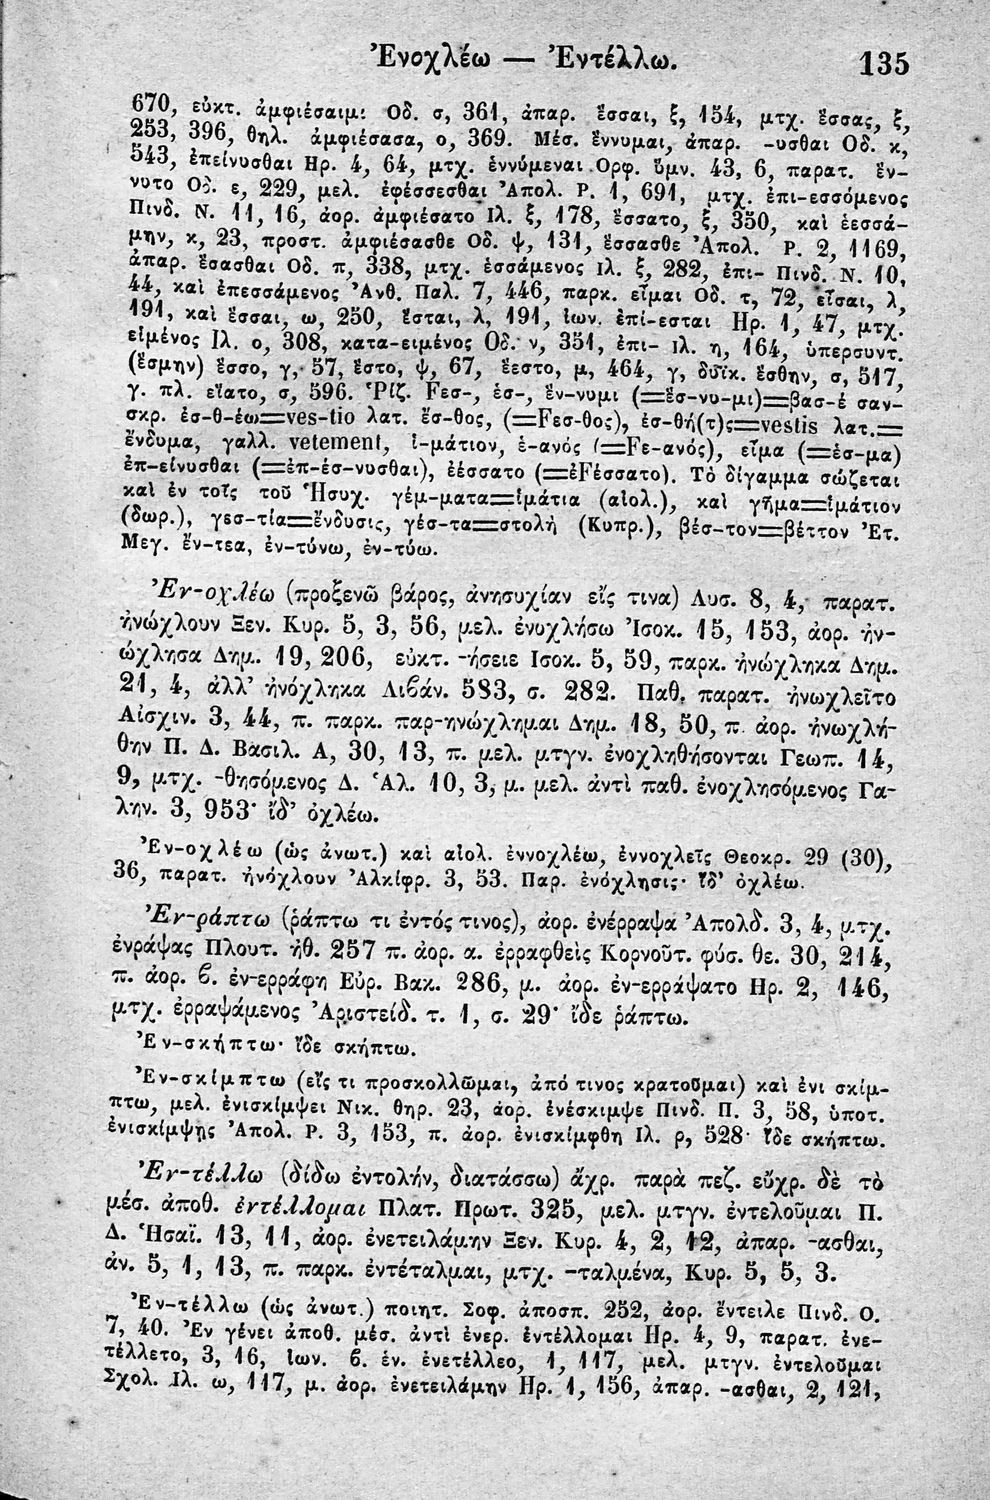 Ἐνοχλέω — Ἐντέλλω. 135
670, εὐκτ. ἀμφιέσαιμι Οδ. σ, 361, ἀπαρ. ἕσσαι, ξ, 154, μτχ. ἕσσας, ξ,
253, 396, θηλ. ἀμφιέσασα, ο, 369. Μέσ. ἕννυμαι, ἀπαρ. -υσθαι Οδ. κ,
543, ἐπείνυσθαι Ηρ. 4, 64, μτχ. ἑννύμεναι Ορφ. ὕμν. 43, 6, παρατ. ἕν-
νυτο Οδ. ε, 229, μελ. ἐφέσσεσθαι Ἀπολ. Ρ. 1, 691, μτχ. ἐπι-εσσόμενος
Πινδ. Ν. 11, 16, ἀορ. ἀμφιέσατο Ιλ. ξ, 178, ἕσσατο, ξ, 350, καὶ ἑεσσά-
μην, κ, 23, προστ. ἀμφιέσασθε Οδ. ψ, 131, ἕσσασθε Ἀπολ. Ρ. 2, 1169,
ἀπαρ. ἕσασθαι Οδ. π, 338, μτχ. ἑσσάμενος Ιλ. ξ, 282, ἐπι- Πινδ. Ν. 10,
44, καὶ ἐπεσσάμενος Ἀνθ. Παλ. 7, 446, παρκ. εἷμαι Οδ. τ, 72, εἷσαι, λ,
191, καὶ ἕσσαι, ω, 250, ἕσται, λ, 191, ἰων. ἐπί-εσται Ηρ. 1, 47, μτχ.
εἱμένος Ιλ. ο, 308, κατα-ειμένος Οδ. ν, 351, ἐπι- Ιλ. η, 164, ὑπερσυντ.
(ἕσμην) ἕσσο, γ, 57, ἕστο, ψ, 67, ἕεστο, μ, 464, γ, δυϊκ. ἕσθην, σ, 517,
γ. πλ. εἵατο, σ, 596. Ῥίζ. Fεσ-, ἑσ-, ἕν-νυμι (=ἕσ-νυ-μι)=βασ-έ σαν-
σκρ. ἐσ-θ-έω=ves-tio λατ. ἔσ-θος, (=Fεσ-θος), ἐσ-θή(τ)ς=vestis λατ.=
ἔνδυμα, γαλλ. vetement, ἱ-μάτιον, ἑ-ανός (=Fε-ανός), εἷμα (=ἑσ-μα)
ἐπ-είνυσθαι (=ἐπ-έσ-νυσθαι), ἐέσσατο (=ἐFέσσατο). Τὸ δίγαμμα σώζεται
καὶ ἐν τοῖς τοῦ Ἡσυχ. γέμ-ματα=ἱμάτια (αἰολ.), καὶ γῆμα=ἱμάτιον
(δωρ.), γεσ-τία=ἔνδυσις, γέσ-τα=στολὴ (Κυπρ.), βέσ-τον=βέττον Ἐτ.
Μεγ. ἔν-τεα, ἐν-τύνω, ἐν-τύω.
Ἐν-οχλέω (προξενῶ βάρος, ἀνησυχίαν εἴς τινα) Λυσ. 8, 4, παρατ.
ἠνώχλουν Ξεν. Κυρ. 5, 3, 56, μελ. ἐνοχλήσω Ἰσοκ. 15, 153, ἀορ. ἠν-
ώχλησα Δημ. 19, 206, εὐκτ. -ήσειε Ισοκ. 5, 59, παρκ. ἠνώχληκα Δημ.
21, 4, ἀλλ' ἠνόχληκα Λιβάν. 583, σ. 282. Παθ. παρατ. ἠνωχλεῖτο
Αἰσχιν. 3, 44, π. παρκ. παρ-ηνώχλημαι Δημ. 18, 50, π. ἀορ. ἠνωχλή-
θην Π. Δ. Βασιλ. Α, 30, 13, π. μελ. μτγν. ἐνοχληθήσονται Γεωπ. 14,
9, μτχ. -θησόμενος Δ. Ἁλ. 10, 3, μ. μελ. ἀντὶ παθ. ἐνοχλησόμενος Γα-
λην. 3, 953· ἴδ' ὀχλέω.
Ἐν-οχλέω (ὡς ἀνωτ.) καὶ αἰολ. ἐννοχλέω, ἐννοχλεῖς Θεοκρ. 29 (30),
36, παρατ. ἠνόχλουν Ἀλκίφρ. 3, 53. Παρ. ἐνόχλησις· ἴδ' ὀχλέω.
Ἐν-ράπτω (ῥάπτω τι ἐντός τινος), ἀορ. ἐνέρραψα Ἀπολδ. 3, 4, μτχ.
ἐνράψας Πλουτ. ἠθ. 257 π. ἀορ. α. ἐρραφθεὶς Κορνοῦτ. φύσ. θε. 30, 214,
π. ἀορ. β. ἐν-ερράφη Εὐρ. Βακ. 286, μ. ἀορ. ἐν-ερράψατο Ηρ. 2, 146,
μτχ. ἐρραψάμενος Ἀριστείδ. τ. 1, σ. 29· ἴδε ῥάπτω.
Ἐν-σκήπτω· ἴδε σκήπτω.
Ἐν-σκίμπτω (εἴς τι προσκολλῶμαι, ἀπό τινος κρατοῦμαι) καὶ ἐνι σκίμ-
πτω, μελ. ἐνισκίμψει Νικ. θηρ. 23, ἀορ. ἐνέσκιμψε Πινδ. Π. 3, 58, ὑποτ.
ἐνισκίμψῃς Ἀπολ. Ρ. 3, 153, π. ἀορ. ἐνισκίμφθη Ιλ. ρ, 528· ἴδε σκήπτω.
Ἐν-τέλλω (δίδω ἐντολήν, διατάσσω) ἄχρ. παρὰ πεζ. εὔχρ. δὲ τὸ
μέσ. ἀποθ. ἐντέλλομαι Πλατ. Πρωτ. 325, μελ. μτγν. ἐντελοῦμαι Π.
Δ. Ἡσαΐ. 13, 11, ἀορ. ἐνετειλάμην Ξεν. Κυρ. 4, 2, 12, ἀπαρ. -ασθαι,
ἀν. 5, 1, 13, π. παρκ. ἐντέταλμαι, μτχ. -ταλμένα, Κυρ. 5, 5, 3.
Ἐν-τέλλω (ὡς ἀνωτ.) ποιητ. Σοφ. ἀποσπ. 252, ἀορ. ἔντειλε Πινδ. Ο.
7, 40. Ἐν γένει ἀποθ. μέσ. ἀντὶ ἐνερ. ἐντέλλομαι Ηρ. 4, 9, παρατ. ἐνε-
τέλλετο, 3, 16, ἰων. β. ἑν. ἐνετέλλεο, 1, 117, μελ. μτγν. ἐντελοῦμαι
Σχολ. Ιλ. ω, 117, μ. ἀορ. ἐνετειλάμην Ηρ. 1, 156, ἀπαρ. -ασθαι, 2, 121,